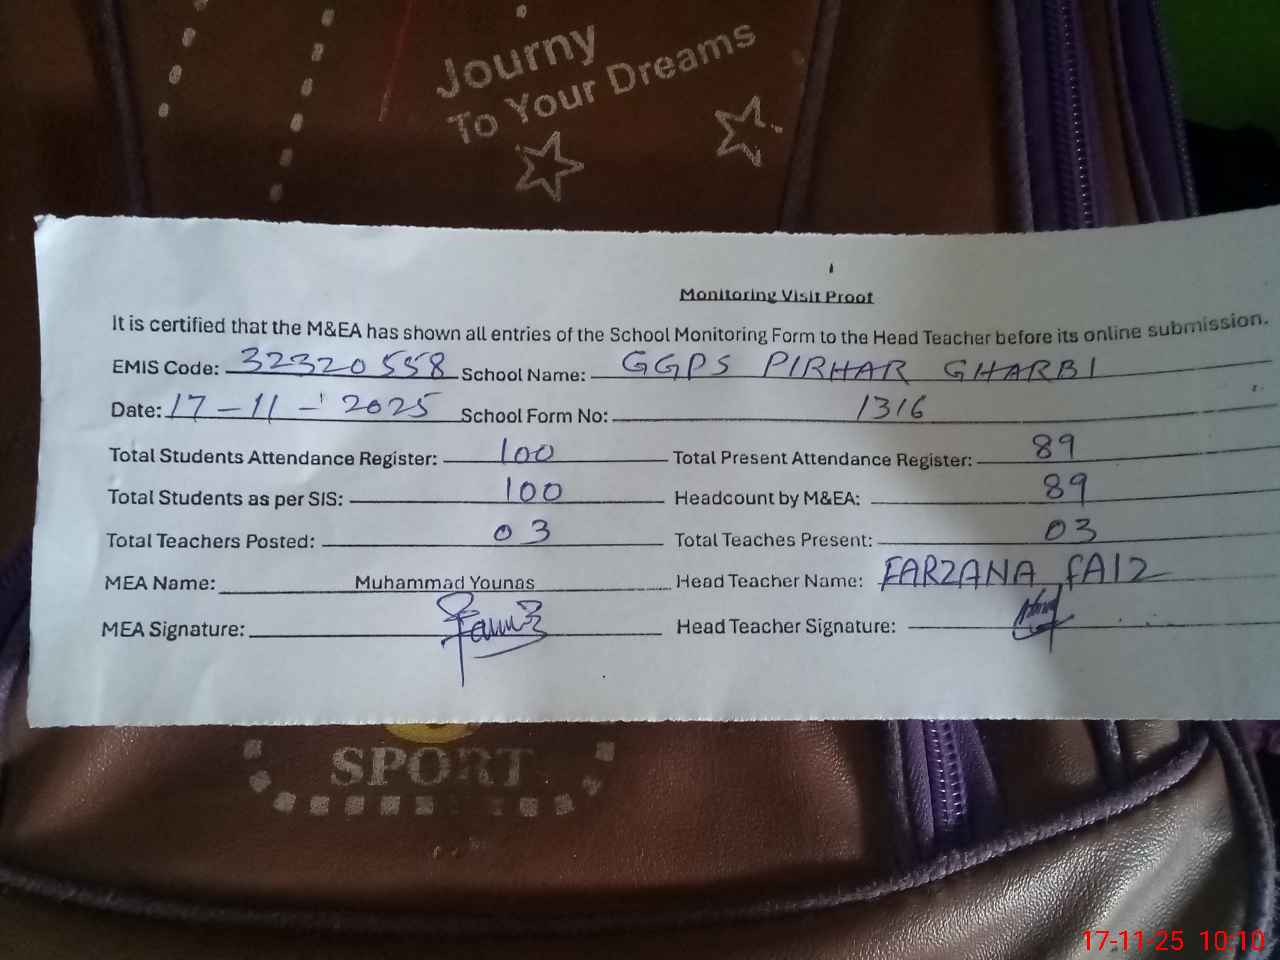 Journy
To Your Dreams
Monitoring Visit Proof
It is certified that the M&EA has shown all entries of the School Monitoring Form to the Head Teacher before its online submission.
EMIS Code: 32320558 School Name: GGPS PIRHAR GHARBI
Date: 17-11-2025 School Form No: 1316
Total Students Attendance Register: 100 Total Present Attendance Register: 89
Total Students as per SIS: 100 Headcount by M&EA: 89
Total Teachers Posted: 03 Total Teaches Present: 03
MEA Name: Muhammad Younas Head Teacher Name: FARZANA FAIZ
MEA Signature: Head Teacher Signature:
SPORT
17-11-25 10:10